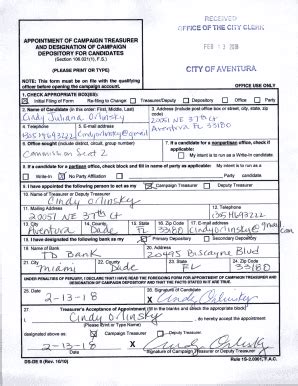 RECEIVED
OFFICE OF THE CITY CLERK
FEB 13 2018
CITY OF AVENTURA
APPOINTMENT OF CAMPAIGN TREASURER
AND DESIGNATION OF CAMPAIGN
DEPOSITORY FOR CANDIDATES
(Section 106.021(1), F.S.)
(PLEASE PRINT OR TYPE)
NOTE: This form must be on file with the qualifying
officer before opening the campaign account.
OFFICE USE ONLY
1. CHECK APPROPRIATE BOX(ES):
Initial Filing of Form Re-filing to Change: Treasurer/Deputy Depository Office Party
2. Name of Candidate (in this order: First, Middle, Last)
Cindy Juliana Orlinsky
3. Address (include post office box or street, city, state, zip
code)
20051 NE 37th Ct
Aventura FL 33180
4. Telephone
5. E-mail address
6. Office sought (include district, circuit, group number)
Commission Seat 2
7. If a candidate for a nonpartisan office, check if
applicable:
My intent is to run as a Write-In candidate.
8. If a candidate for a partisan office, check block and fill in name of party as applicable: My intent is to run as a
Write-In No Party Affiliation Party candidate.
9. I have appointed the following person to act as my Campaign Treasurer Deputy Treasurer
10. Name of Treasurer or Deputy Treasurer
Cindy Orlinsky
11. Mailing Address
20051 NE 37th Ct
12. Telephone
13. City
Aventura
14. County
Dade
15. State
FL
16. Zip Code
33180
17. E-mail address
18. I have designated the following bank as my Primary Depository Secondary Depository
19. Name of Bank
TD Bank
20. Address
20495 Biscayne Blvd
21. City
Miami
22. County
Dade
23. State
FL
24. Zip Code
33180
UNDER PENALTIES OF PERJURY, I DECLARE THAT I HAVE READ THE FOREGOING FORM FOR APPOINTMENT OF CAMPAIGN TREASURER AND
DESIGNATION OF CAMPAIGN DEPOSITORY AND THAT THE FACTS STATED IN IT ARE TRUE.
25. Date
2-13-18
26. Signature of Candidate
X Cindy Orlinsky
27. Treasurer's Acceptance of Appointment (fill in the blanks and check the appropriate block)
I, Cindy Orlinsky , do hereby accept the appointment
(Please Print or Type Name)
designated above as: Campaign Treasurer Deputy Treasurer.
2-13-18
X Cindy Orlinsky
Date
Signature of Campaign Treasurer or Deputy Treasurer
DS-DE 9 (Rev. 10/10)
Rule 1S-2.0001, F.A.C.